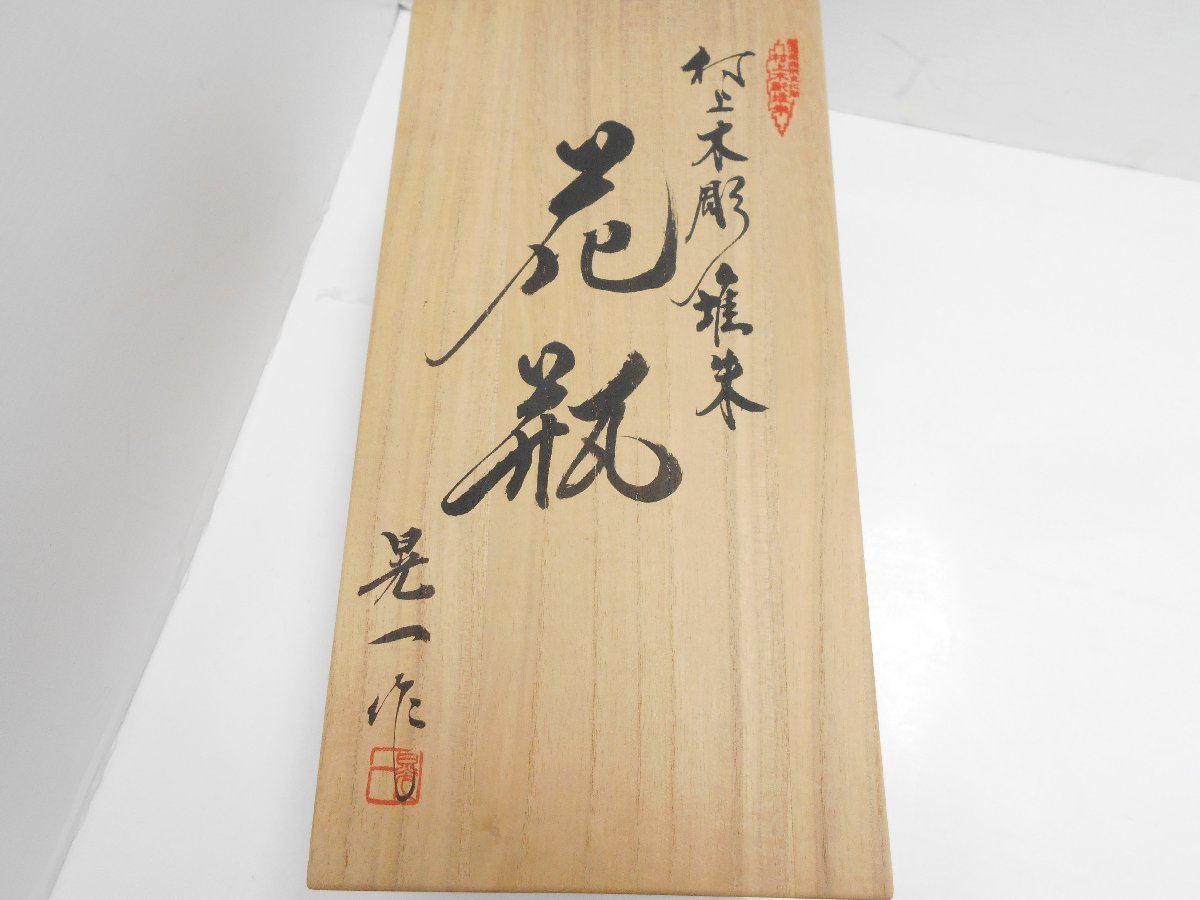 村上木彫堆朱
花瓶
晃一作